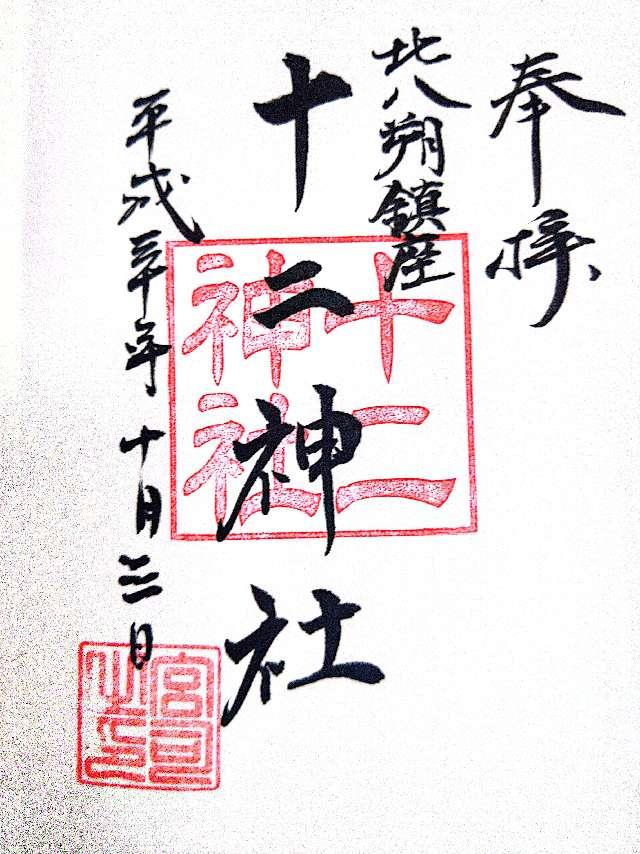 奉拝
北八朔鎮座
十二神社
平成三十年十月三日
十二
神社
宮司
之印